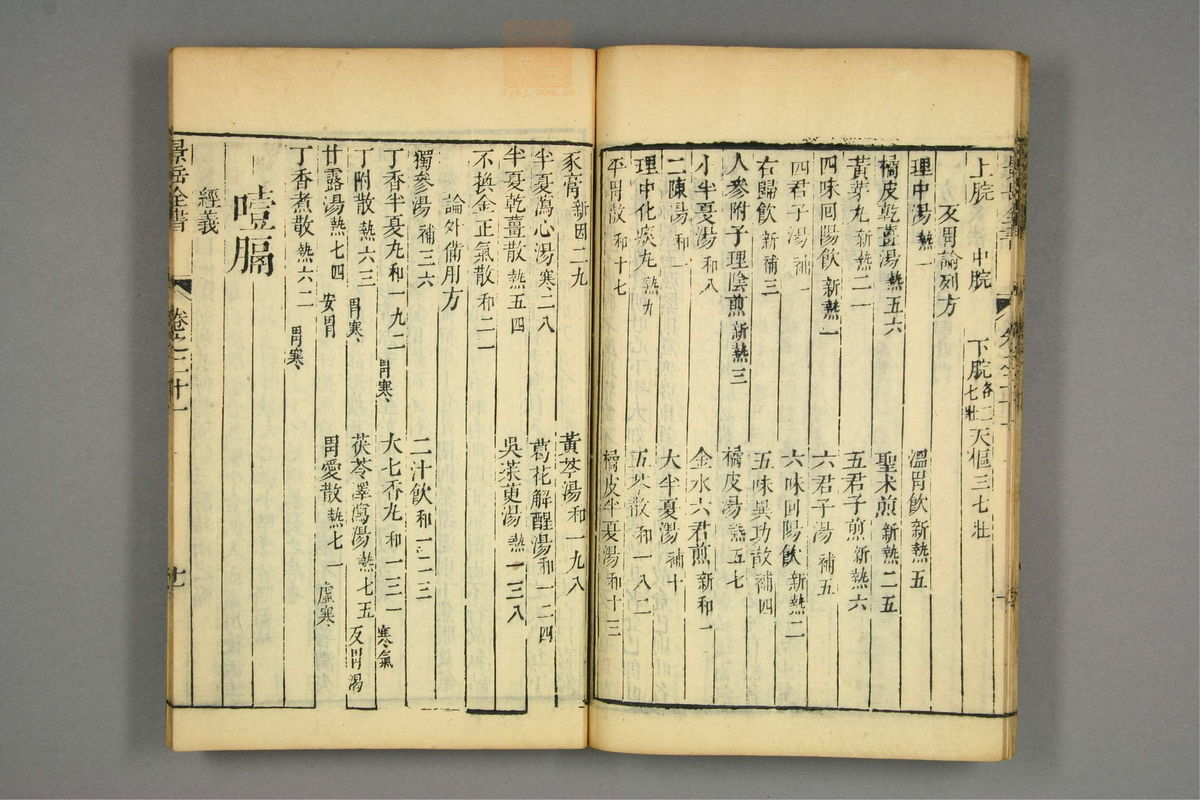 上脘 中脘 下脘各二七壯 天樞三七壯
反胃論列方
理中湯熱一 溫胃飲新熱五
橘皮乾薑湯熱五六 聖朮煎新熱二五
黃芽丸新熱二一 五君子煎新熱六
四味回陽飲新熱一 六君子湯補五
四君子湯補一 六味回陽飲新熱二
右歸飲新補三 五味異功散補四
人參附子理陰煎新熱三 橘皮湯熱五七
小半夏湯和八 金水六君煎新和一
二陳湯和一 大半夏湯補十
理中化痰丸熱九 五苓散和一八二
平胃散和十七 橘皮半夏湯和十三
豕膏新因二九 黃芩湯和一九八
半夏瀉心湯寒二八 葛花解醒湯和一二四
半夏乾薑散熱五四 吳茱萸湯熱一三八
不換金正氣散和二一
論外備用方
獨參湯補三六 二汁飲和一二三
丁香半夏丸和一九二 胃寒 大七香丸和一三一 寒氣
丁附散熱六三 胃寒 茯苓澤瀉湯熱七五 反胃渴
甘露湯熱七四 安胃 胃愛散熱七一 虛寒
丁香煮散熱六二 胃寒
噎膈
經義
景岳全書 卷之二十一